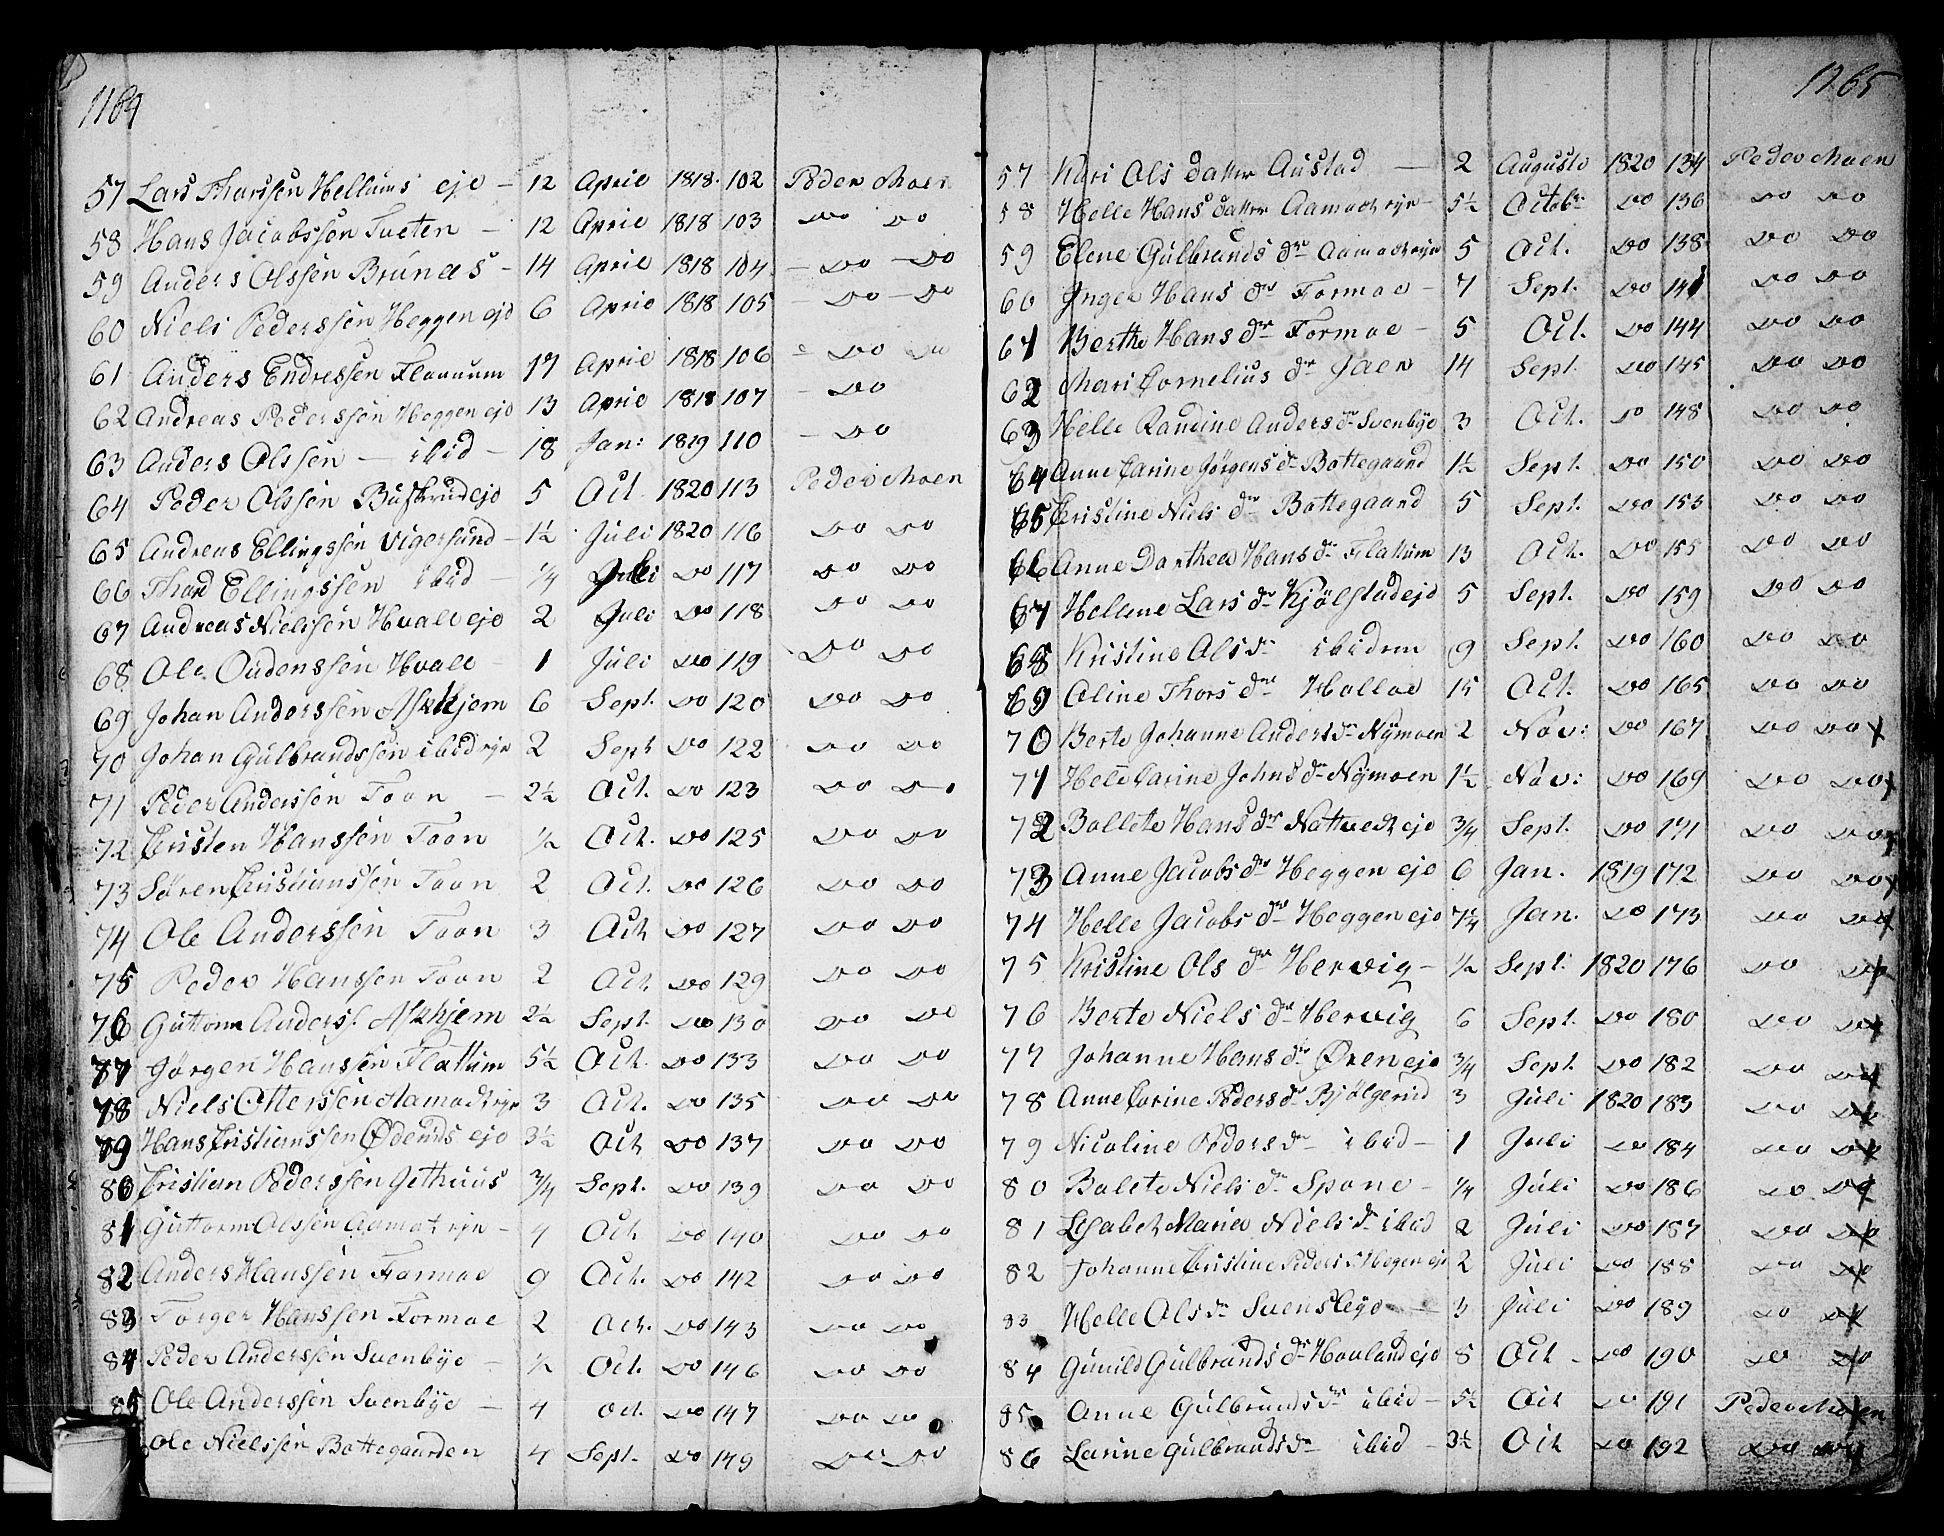 1164
57 Lars Tharssen Hellums eje – 12 April 1818 102 Peder Moen
58 Hans Jacobssen Tveten – 12 April 1818 103 Do Do
59 Anders Olssen Brunæs – 14 April 1818 104 – Do – Do
60 Niels Pederssen Heggen eje 6 April 1818 105 – Do – Do
61 Anders Endressen 17 April 1818 106 – Do Do
62 Andreas Pederssen Heggen eje 13 April 1818 107 – Do
63 Anders Olssen – ibid – 18 Jan: 1819 110 – Do
64 Peder Olssen Buskrud eje 5 Oct 1820 113 Peder Moen
65 Andreas Ellingssen Vigersund – 1½ Juli 1820 116 Do Do
66 Thord Ellingssen ibid – ¼ Juli Do 117 Do Do
67 Andreas Nielssen Hvale eje 2 Juli Do 118 Do Do
68 Ole Oudenssen Hvale – 1 Juli Do 119 Do Do
69 Johan Anderssen Askkjem 6 Sept. Do 120 Do Do
70 Johan Gulbrandssen ibid eje 2 Sept Do 122 Do Do
71 Peder Anderssen Toon – 2½ Oct. Do 123 Do Do
72 Cristen Hanssen Toon ½ Oct. Do 125 Do Do
73 Søren Cristianssen Toon 2 Oct. Do 126 Do Do
74 Ole Anderssen Toon 3 Oct Do 127 Do Do
75 Peder Hanssen Toon 2 Oct Do 129 Do Do
76 Guttorm Anders. Askhjem 2½ Sept. Do 130 Do Do
77 Jørgen Hanssen Flattum 5½ Oct. Do 133 Do Do
78 Niels Otterssen Aamodt eje 3 Oct. Do 135 Do Do
79 Hans Cristianssen Ødends eje 3½ Oct Do 137 Do Do
80 Cristian Pederssen Gethuus ¾ Sept. Do 139 Do Do
81 Guttorm Olssen Aamot eje – 4 Oct Do 140 Do Do
82 Anders Hanssen Formoe 9 Oct. Do 142 Do Do
83 Torger Hanssen Formoe 2 Oct. Do 143 Do Do
84 Peder Anderssen Svenbye – ½ Oct. Do 146 Do Do
85 Ole Anderssen Svenbye – 4 oct. Do 147 Do Do
Ole Nielssen Bottegaarden 4 Sept. Do 149 Do Do
1165
57 Kari Ols datter Austad – 2 Augusto 1820 134 Peder Moen
58 Helle Hans datter Aamodt eje – 5½ Octobr Do 136 Do Do
59 Elene Gulbrands dr Aamodt eje 5 Oct. Do 138 Do Do
60 Inger Hans dr Formoe – 7 Sept. Do 141 Do Do
61 Berthe Hans dr Formoe – 5 Oct. Do 144 Do Do
62 Mari Cornelius dr Jaer 14 Sept. Do 145 Do Do
63 Helle Randine Anders dr Svenbye 3 Oct. Do 148 Do Do
64 Anne Carine Jørgens dr Bottegaard 1½ Sept. Do 150 Do Do
65 Cristine Niels dr Bottegaard 5 Sept. Do 153 Do Do
66 Anne Darthea Hans dr Flattum 13 Oct. Do 155 Do Do
67 Helene Lars dr Kjølstad eje 5 Sept. Do 159 Do Do
68 Kristine Ols dr ibidem 9 Sept. Do 160 Do Do
69 Oline Thors dr Holloe 15 Oct. Do 165 Do Do
70 Berte Johanne Anders dr Nymoen 2 Nov: Do 167 Do Do
71 Hele Carine Johns dr Nymoen 1½ Nov: Do 169 Do Do
72 Bollete Hans dr Nattvedt eje ¾ Sept. Do 171 Do Do
73 Anne Jacobs dr Heggen eje 6 Jan. 1819 172 Do Do
74 Helle Jacobs dr Heggen eje 7¼ Jan. Do 173 Do Do
75 Kristine Ols dr Hervig – ½ Sept: 1820 176 Do Do
76 Berte Niels dr Hervig 6 Sept. Do 180 Do Do
77 Johanne Hans dr Øren eje ¾ Sept. Do 182 Do Do
78 Anne Carine Peders dr Bjølgerud 3 Juli 1820 183 Do Do
79 Nicoline Peders dr ibid – 1 Juli Do 184 Do Do
80 Bolete Niels dr Spone – ¼ Juli Do 186 Do Do
81 Lisabet Maria Niels dr ibid 2 Juli Do 187 Do Do
82 Johanne Cristine Peders dr Hegen eje 2 Juli Do 188 Do Do
83 Helle Ols dr Svensleje – 3 Juli Do 189 Do Do
84 Gunild Gulbrands dr Hovland eje 8 Oct – Do 190 Do Do
85 Anne Gulbrands dr ibid – 5½ Oct Do 191 Peder Moen
86 Larine Gulbrands dr ibid – 3½ Oct Do 192 Do Do